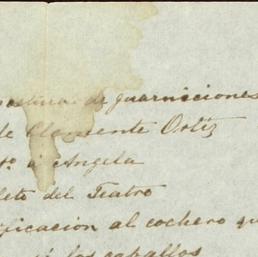 postura de guarniciones
de Clemente Ortiz
á Angela
leto del Teatro
ificacion al cochero que
los caballos